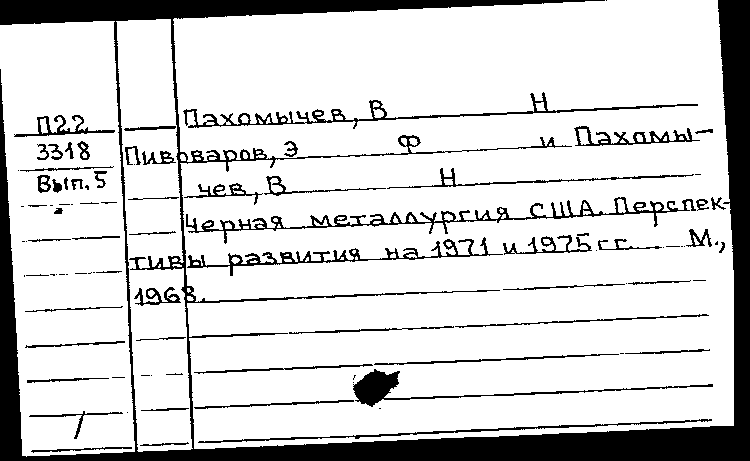 Пахомычев, В Н
П22
3318
Вып. 5
Пивоваров, Э Ф и Пахомы-
чев, В Н
Черная металлургия США. Перспек-
тивы развития на 1971 и 1975 гг. ... М.,
1968.